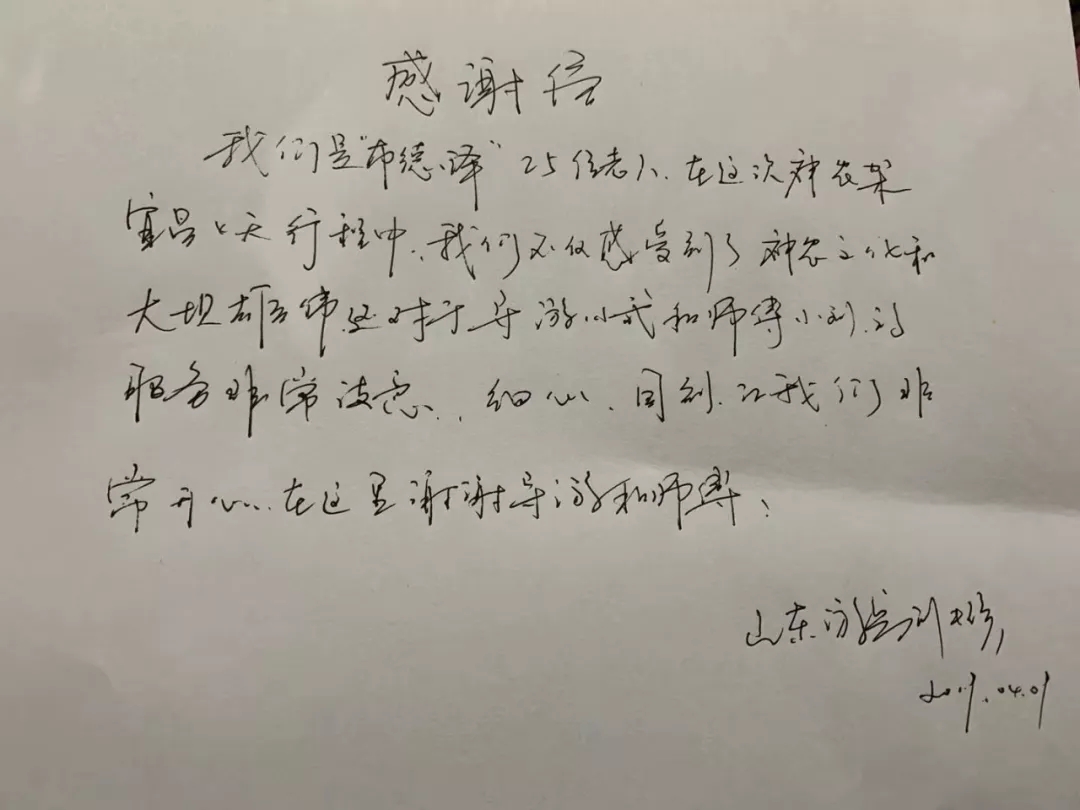 感谢信
我们是“布德泽”25位老人.在这次神农架
宜昌七天行程中,我们不仅感受到了神农文化和
大坝雄伟,还对于导游小武和师傅小刘的
服务非常满意,细心、周到.让我们非
常开心.在这里谢谢导游和师傅!
山东游客刘
04.01